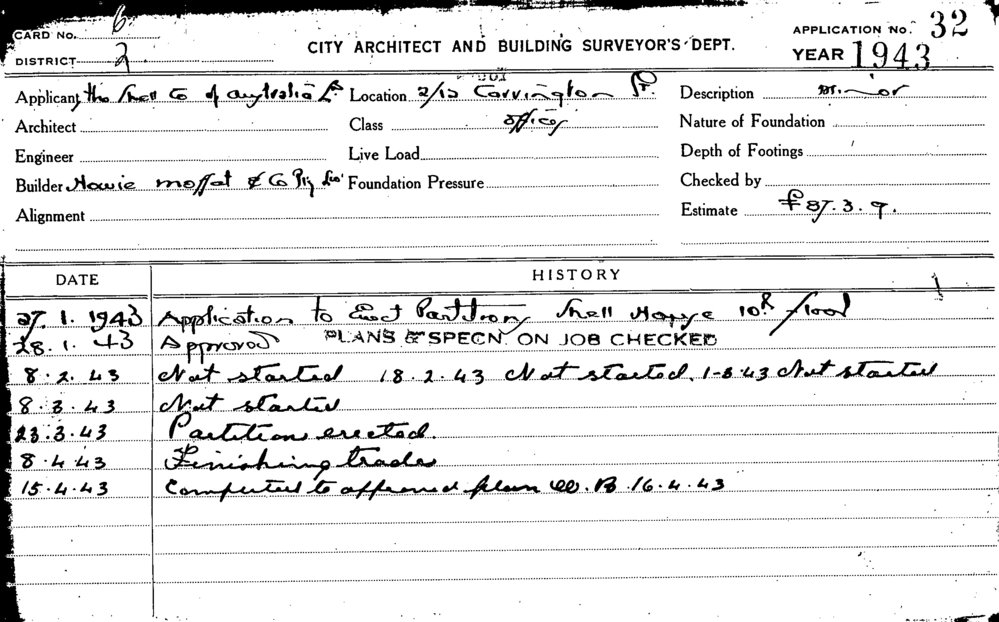 CARD No. 6
DISTRICT 2
CITY ARCHITECT AND BUILDING SURVEYOR'S DEPT.
APPLICATION No. 32
YEAR 1943
Applicant the Shell Co of Australia Ld Location 2/12 Carrington St. Description minor
Architect Class offices Nature of Foundation
Engineer Live Load Depth of Footings
Builder Howie Moffat & Co Pty Ltd Foundation Pressure Checked by
Alignment Estimate £87.3.9.
DATE HISTORY
27.1.1943 Application to Erect Partitions Shell House 10th floor
28.1.43 Approved PLANS & SPECN. ON JOB CHECKED
8.2.43 Not started 18.2.43 Not started. 1-3.43 Not started
8.3.43 Not started
23.3.43 Partitions erected.
8.4.43 Finishing trades
15.4.43 Completed to approved plan W.B. 16.4.43